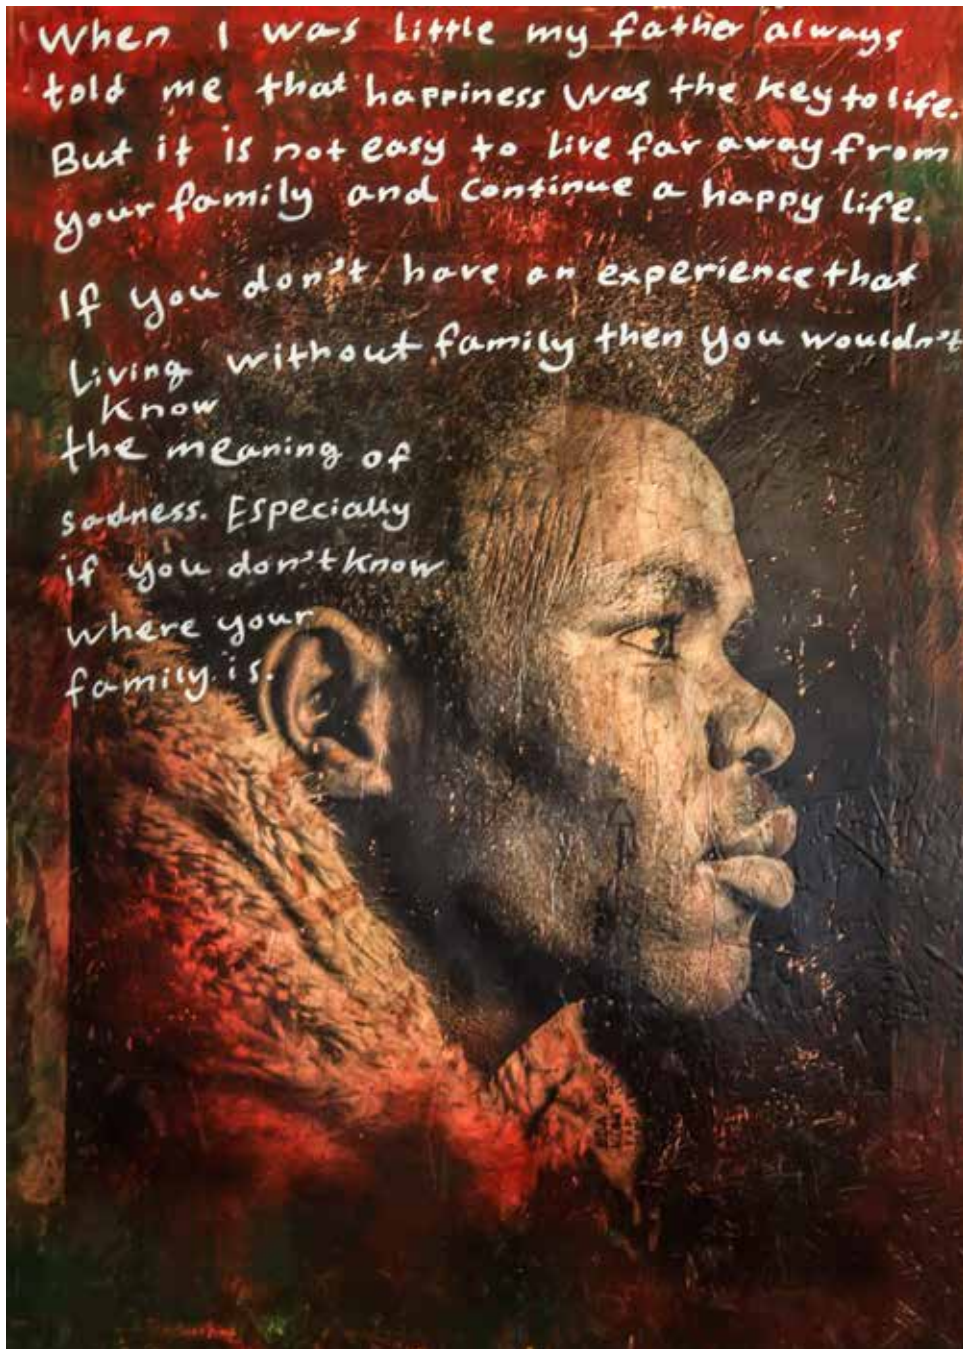 When I was little my father always
told me that happiness was the key to life.
But it is not easy to live far away from
your family and continue a happy life.
If you don't have an experience that
living without family then you wouldn't
know
the meaning of
sadness. Especially
if you don't know
where your
family is.